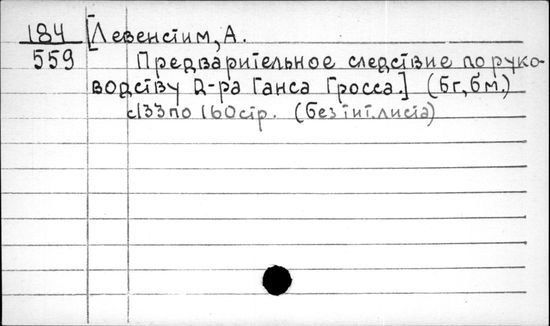 184 [Левенстим, А.
559 Предварительное следствие по руко-
водству Д-ра Ганса Гросса.] (бг, бм.)
с133 по 160 стр. (без тит. листа)